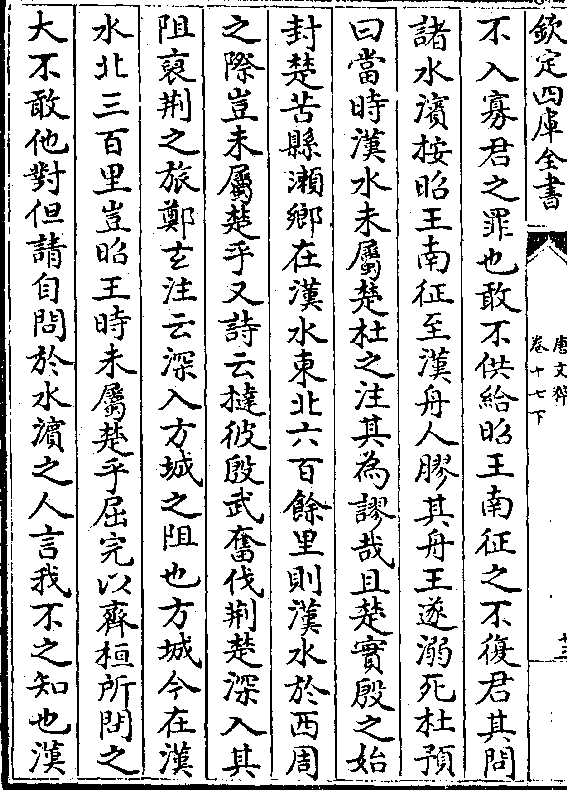 欽定四庫全書
唐文粹
卷十七下
十三
不入寡君之罪也敢不供給昭王南征之不復君其問
諸水濱按昭王南征至漢舟人膠其舟王遂溺死杜預
曰當時漢水未屬楚杜之注其為謬哉且楚實殷之始
封楚苦縣瀨鄉在漢水東北六百餘里則漢水於西周
之際豈未屬楚乎又詩云撻彼殷武奮伐荆楚深入其
阻裒荆之旅鄭玄注云深入方城之阻也方城今在漢
水北三百里豈昭王時未屬楚乎屈完以齊桓所問之
大不敢他對但請自問於水濱之人言我不之知也漢